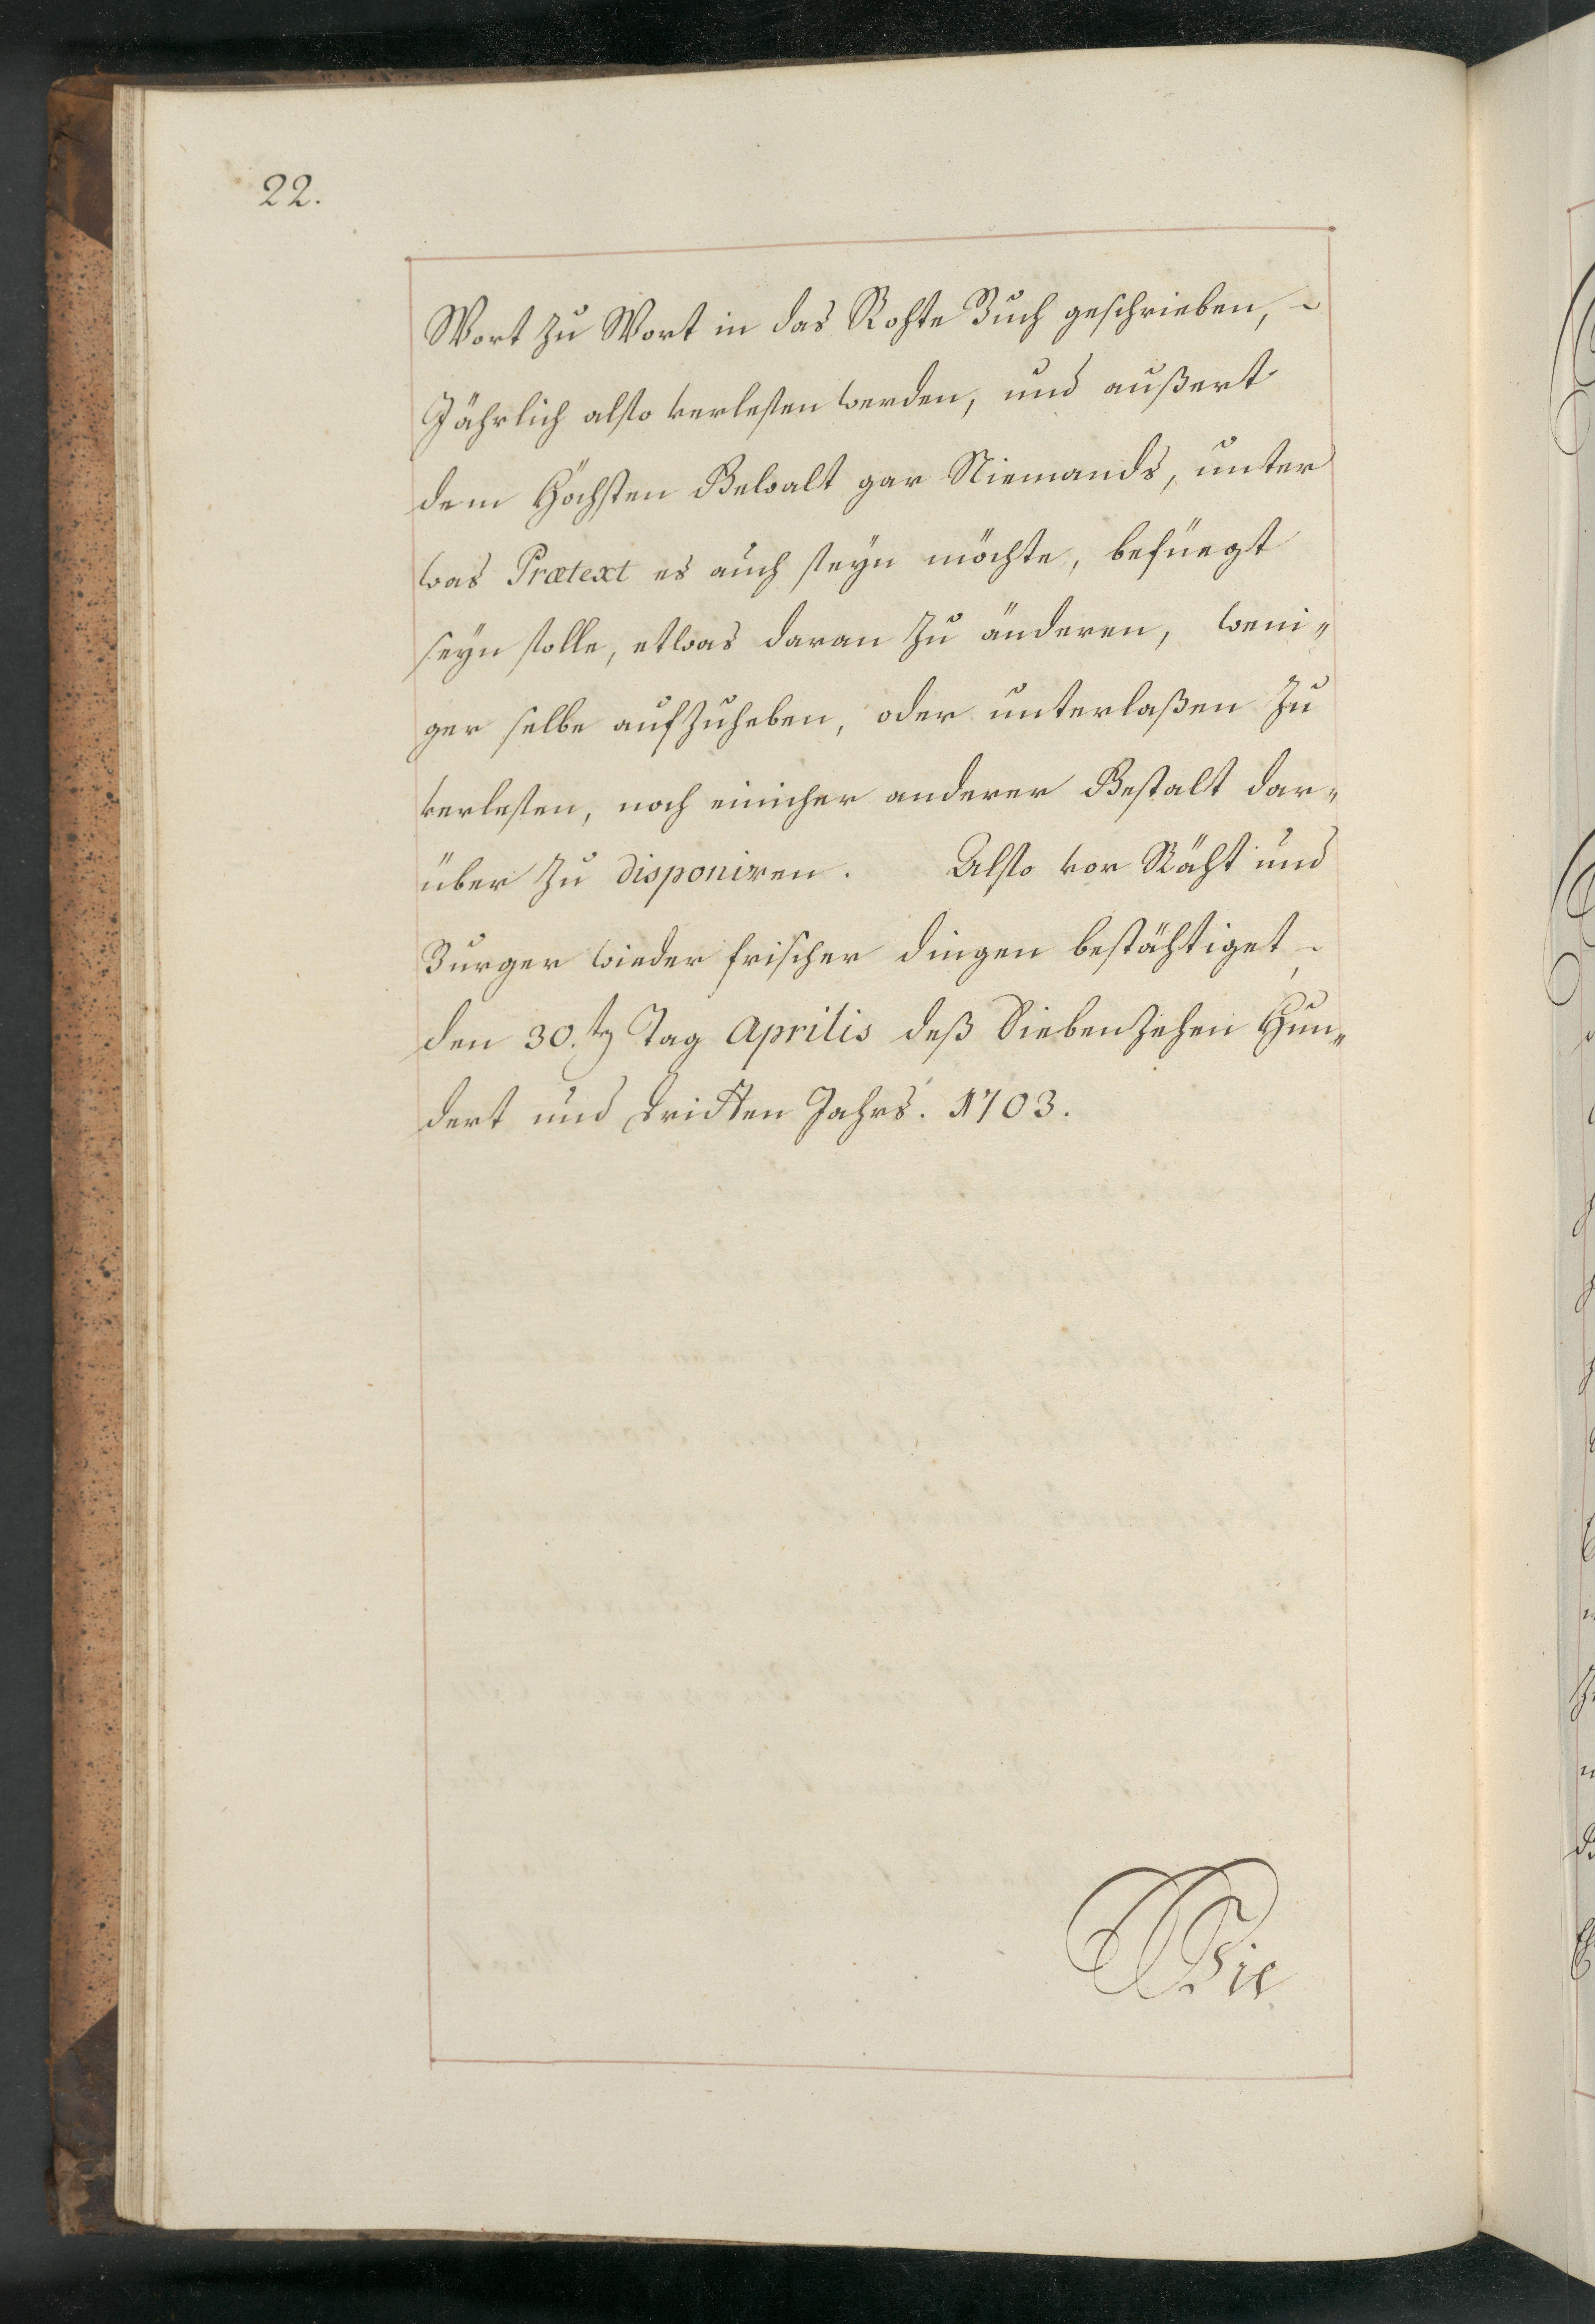 22.
Wort zu Wort in das Rohte Buch geschrieben,
Jährlich also verlesen werden, und außert
dem Höchsten Gewalt gar Niemands, unter
was Prætext es auch seyn möchte, befüegt
seyn solle, etwas daran zu änderen, weni„
ger selbe aufzuheben, oder unterlaßen zu
verlesen, noch einicher anderer Gestalt dar„
über zu disponiren. Also vor Räht und
Burger wieder frischer dingen bestähtiget,
den 30.ten Tag Aprilis deß Siebenzehen Hun„
dert und dritten Jahrs. 1703.
Wie